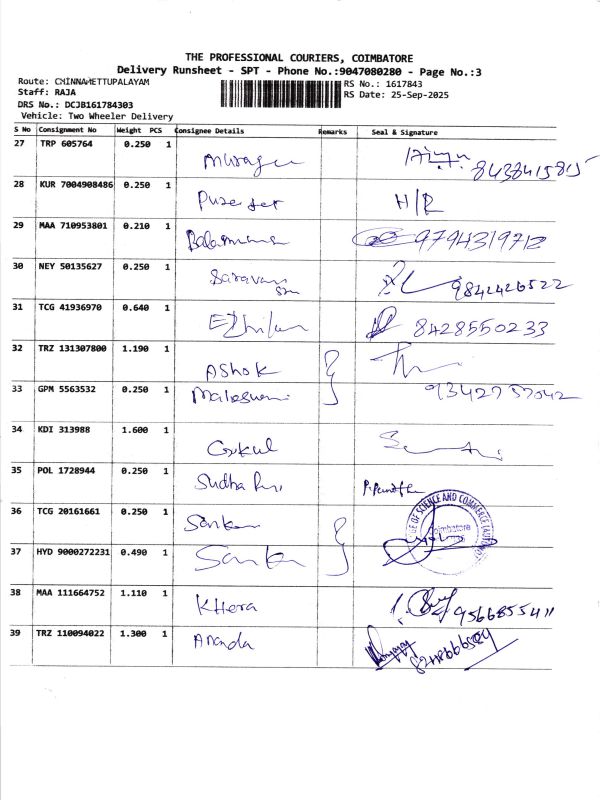 THE PROFESSIONAL COURIERS, COIMBATORE
Delivery Runsheet - SPT - Phone No.:9047080280 - Page No.:3
Route: CHINNAMETTUPALAYAM
RS No.: 1617843
Staff: RAJA
RS Date: 25-Sep-2025
DRS No.: DCJB161784303
Vehicle: Two Wheeler Delivery
S No Consignment No Weight PCS Consignee Details Remarks Seal & Signature
27 TRP 605764 0.250 1 8438415815
28 KUR 7004908486 0.250 1 H/R
29 MAA 710953801 0.210 1 9794319712
30 NEY 50135627 0.250 1 Saravan 9842426522
31 TCG 41936970 0.640 1 Ezhilan 8428550233
32 TRZ 131307800 1.190 1 Ashok
33 GPM 5563532 0.250 1 Maleswari 9342757042
34 KDI 313988 1.600 1 Gokul
35 POL 1728944 0.250 1 Sudha
36 TCG 20161661 0.250 1 Sankar
OF SCIENCE AND COMMERCE
Coimbatore
37 HYD 9000272231 0.490 1 Sankar
38 MAA 111664752 1.110 1 Khera 9566855411
39 TRZ 110094022 1.300 1 Ananda